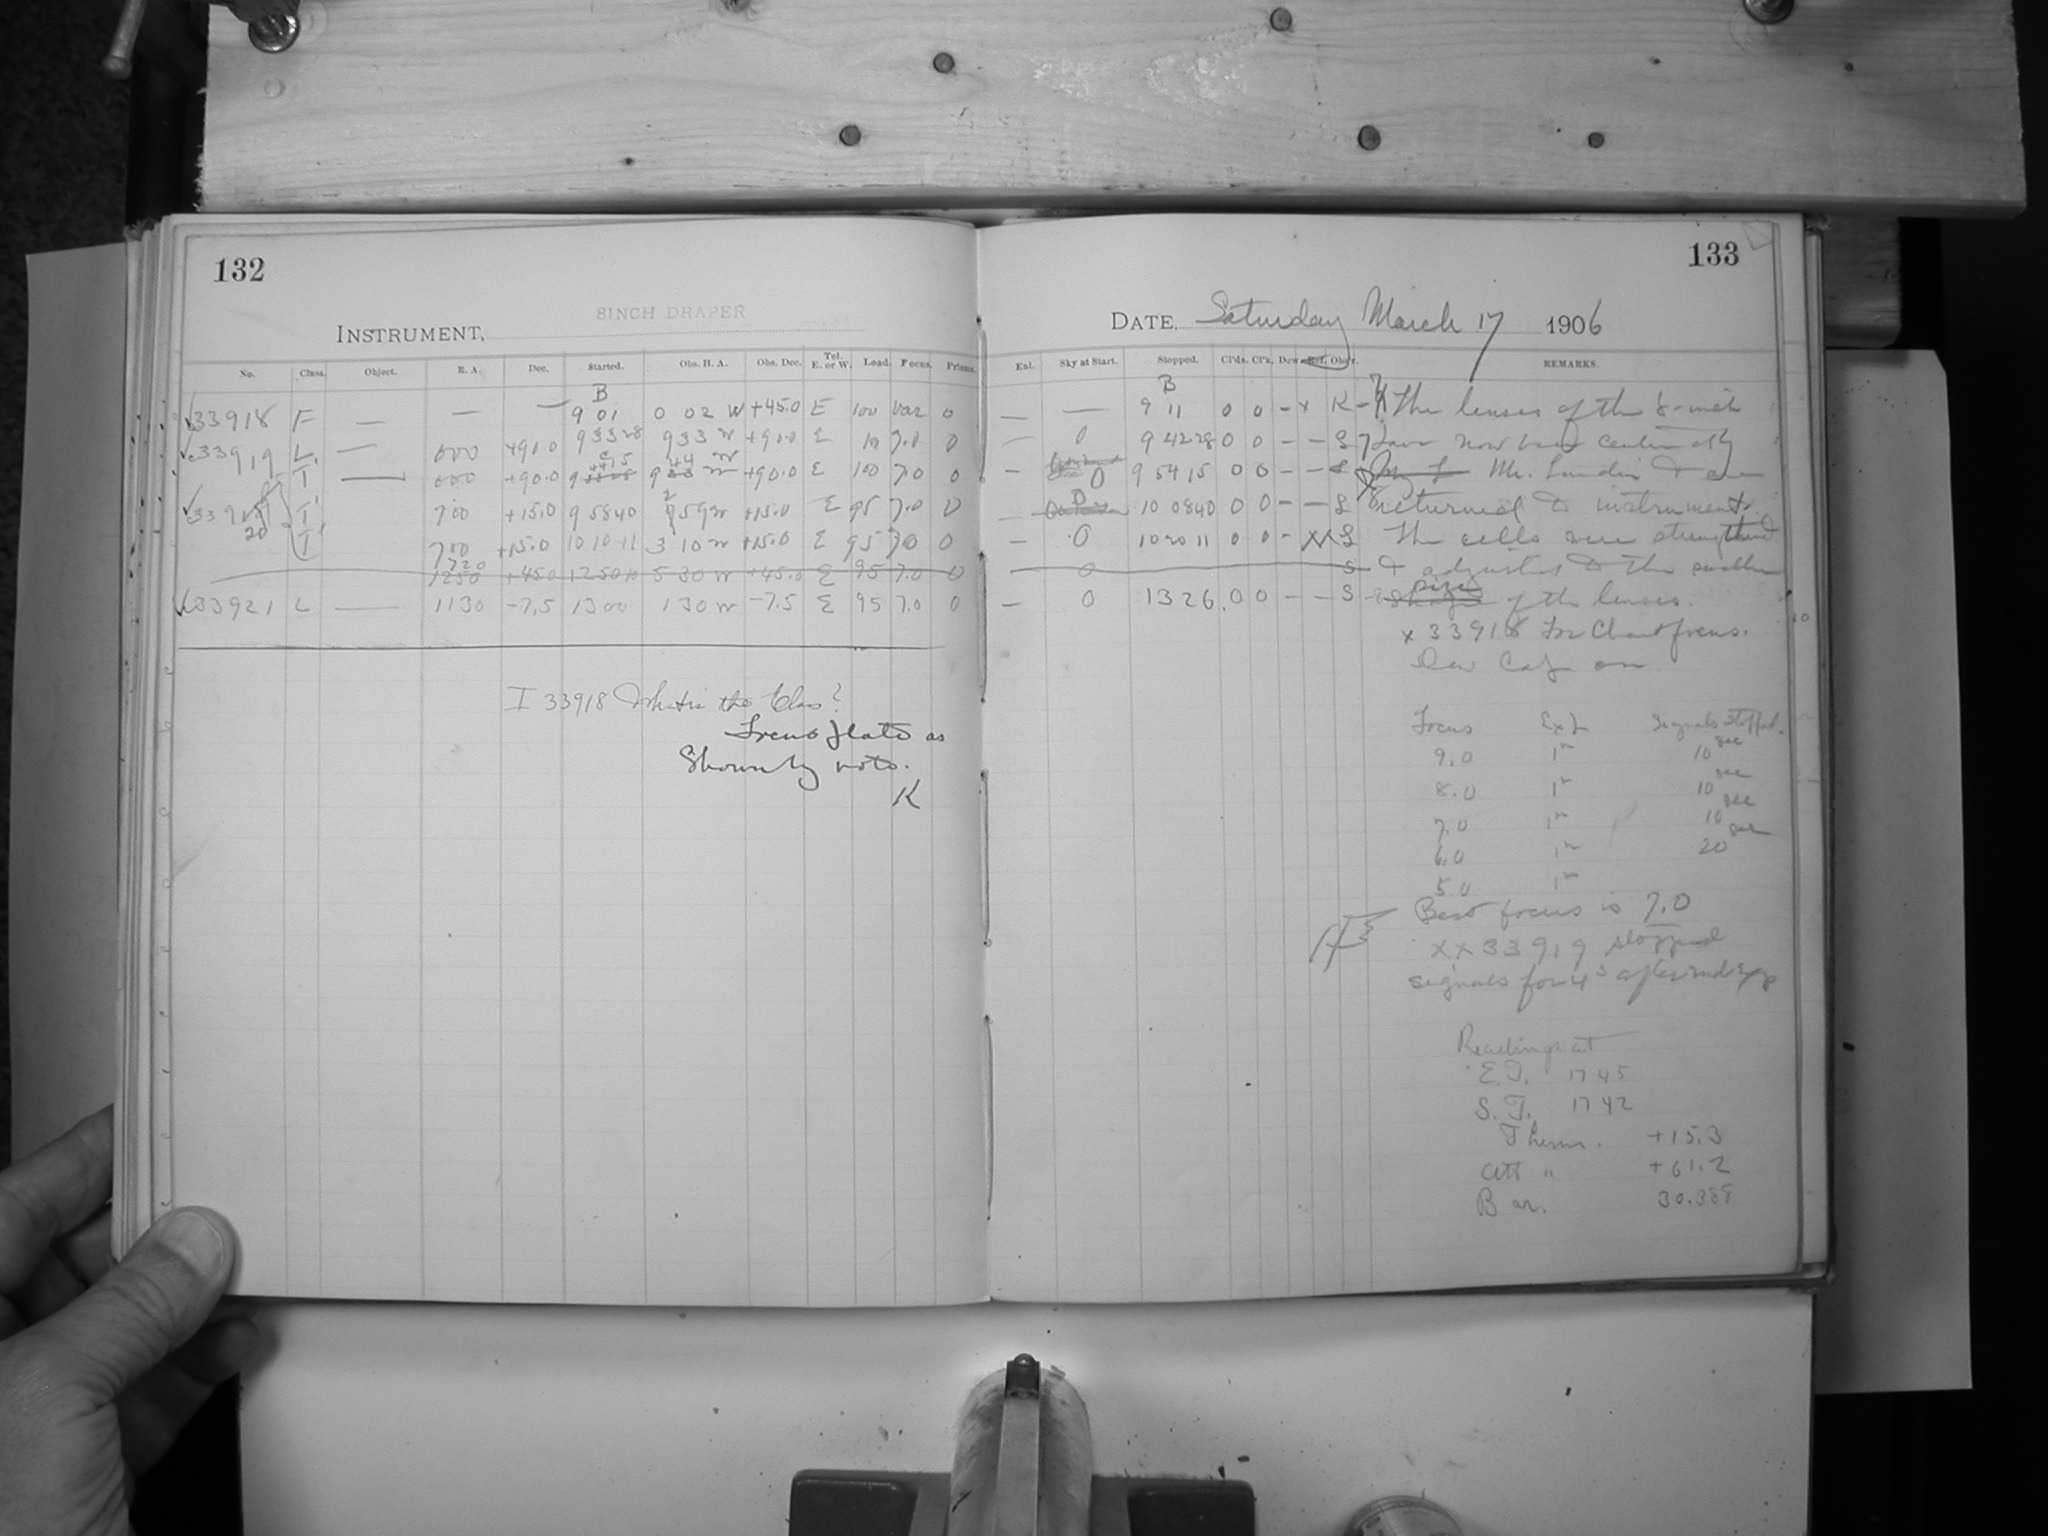 132
8INCH DRAPER
INSTRUMENT,
No. Class. Object. R. A. Dec. Started. Obs. H. A. Obs. Dec. Tel. E. or W. Load. Focus. Prisms.
B
33918 F — — — 9 01 0 02 W +45.0 E 100 Var 0
33919 L — 000 +91.0 9 33 28 9 33 W +91.0 E 10 7.0 0
T — 000 +90.0 9 44 15 9 44 W +90.0 E 100 7.0 0
20 T 700 +15.0 9 58 40 2 59 W +15.0 E 95 7.0 0
T 700 +15.0 10 10 11 3 10 W +15.0 E 95 7.0 0
1720
1250 +45.0 1250 10 5 30 W +45.0 E 95 7.0 0
33921 L — 1130 -7.5 13 00 1 30 W -7.5 E 95 7.0 0
I 33918 What is the Class?
Focus plate as
Shown by note.
K
133
DATE, Saturday March 17 1906
Ent. Sky at Start. Stopped. Cl'ds. Cl'k. Dew Ref. Obs'r. REMARKS.
B
— — 9 11 0 0 - x K The lenses of the 8-inch
— 0 9 42 28 0 0 - - S have now been
— 0 9 54 15 0 0 - - S Mr. Lundin &
— 0 10 08 40 0 0 - - S returned to instrument.
— 0 10 20 11 0 0 - XX S The cells were
— 0 S & adjusted to the
— 0 13 26 0 0 - - S size of the lenses.
x 33918 for Chart focus.
Dew Cap on
Focus Exp Signals stopped.
9.0 1m 10 sec
8.0 1m 10 sec
7.0 1m 10 sec
6.0 1m 20 sec
5.0 1m
Best focus is 7.0
XX 33919 stopped
signals for 4s after 2nd exp
Readings at
E.T. 17 45
S.T. 17 42
Therm. +15.3
Att " +61.2
Bar. 30.388